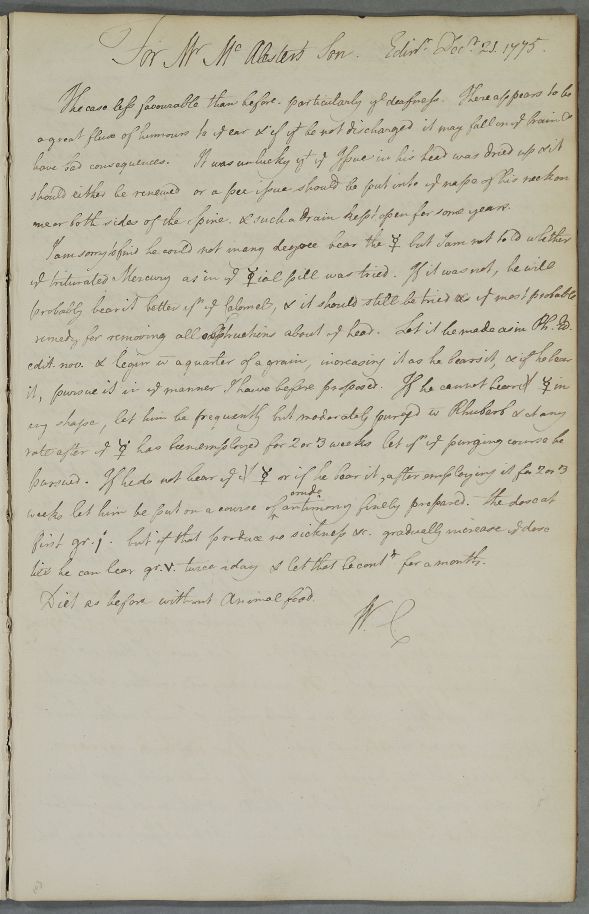 For Mr Mc Alesters Son. Edinr. Decr. 21. 1775.
The case less favourable than before. particularly ye deafness. There appears to be
a great fluxe of humours to ye ear & if yt be not discharged it may fall on ye brain &
have bad consequences. It was unlucky yt ye Issue in his head was dried up & it
should either be renewed or a pee issue should be put into ye nape of his neck on
near both sides of the spine. & such a drain kept open for some years.
I am sorry to find he could not in any degree bear the ☿ but I am not told whether
ye triturated Mercury as in ye ☿ial pill was tried. If it was not, he will
probably bear it better yn ye Calomel, & it should still be tried as ye most probable
remedy for removing all obstructions about ye head. Let it be made as in Ph. Ed.
edit. nov. & begin w a quarter of a grain, increasing it as he bears it, & if he bear
it, pursue it in ye manner I have before proposed. If he cannot bear ye ☿ in
any shape, let him be frequently but moderately purged w Rhubarb & at any
rate after ye ☿ has been employed for 2 or 3 weeks let ys ye purging course be
pursued. If he do not bear ye ☿ or if he bear it, after employing it for 2 or 3
weeks let him be put on a course of crude antimony finely prepared. the dose at
first gr. j. but if that produce no sickness &c. gradually increase ye dose
till he can bear gr. v. twice a day & let that be contd for a month.
Diet as before without Animal food.
W. C